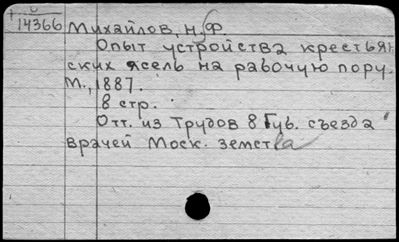 14366 Михайлов, Н.Ф.
Опыт устройства крестьян
ских ясель на рабочую пору.
М., 1887.
8 стр.
Отт. из Трудов 8 Губ. съезда
врачей Моск. земства